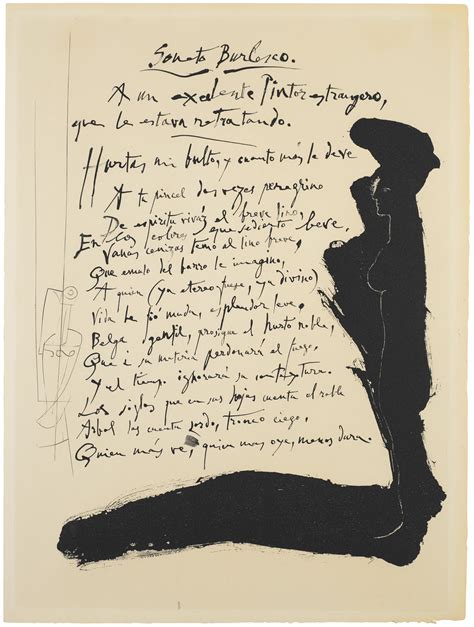 Soneto Burlesco.
A un exelente Pintor estrangero,
que le estava retratando.
Hurtas mi bulto, y cuanto más le deve
A tu pincel dos vezes peregrino
De espiritu vivaz el breve lino,
En los colores que sediento beve,
Vanas cenizas temo al lino breve,
Que emulo del barro le imagino,
A quien (ya etereo fuese, ya divino)
Vida le fió muda, esplendor leve.
Belga gentil, prosigue al hurto noble,
Que a su materia perdonará el fuego,
Y el tiempo ignorará su contextura.
Los siglos que en sus hojas cuenta el roble
Arbol los cuenta sordo, tronco ciego,
Quien más ve, quien mas oye, menos dura.